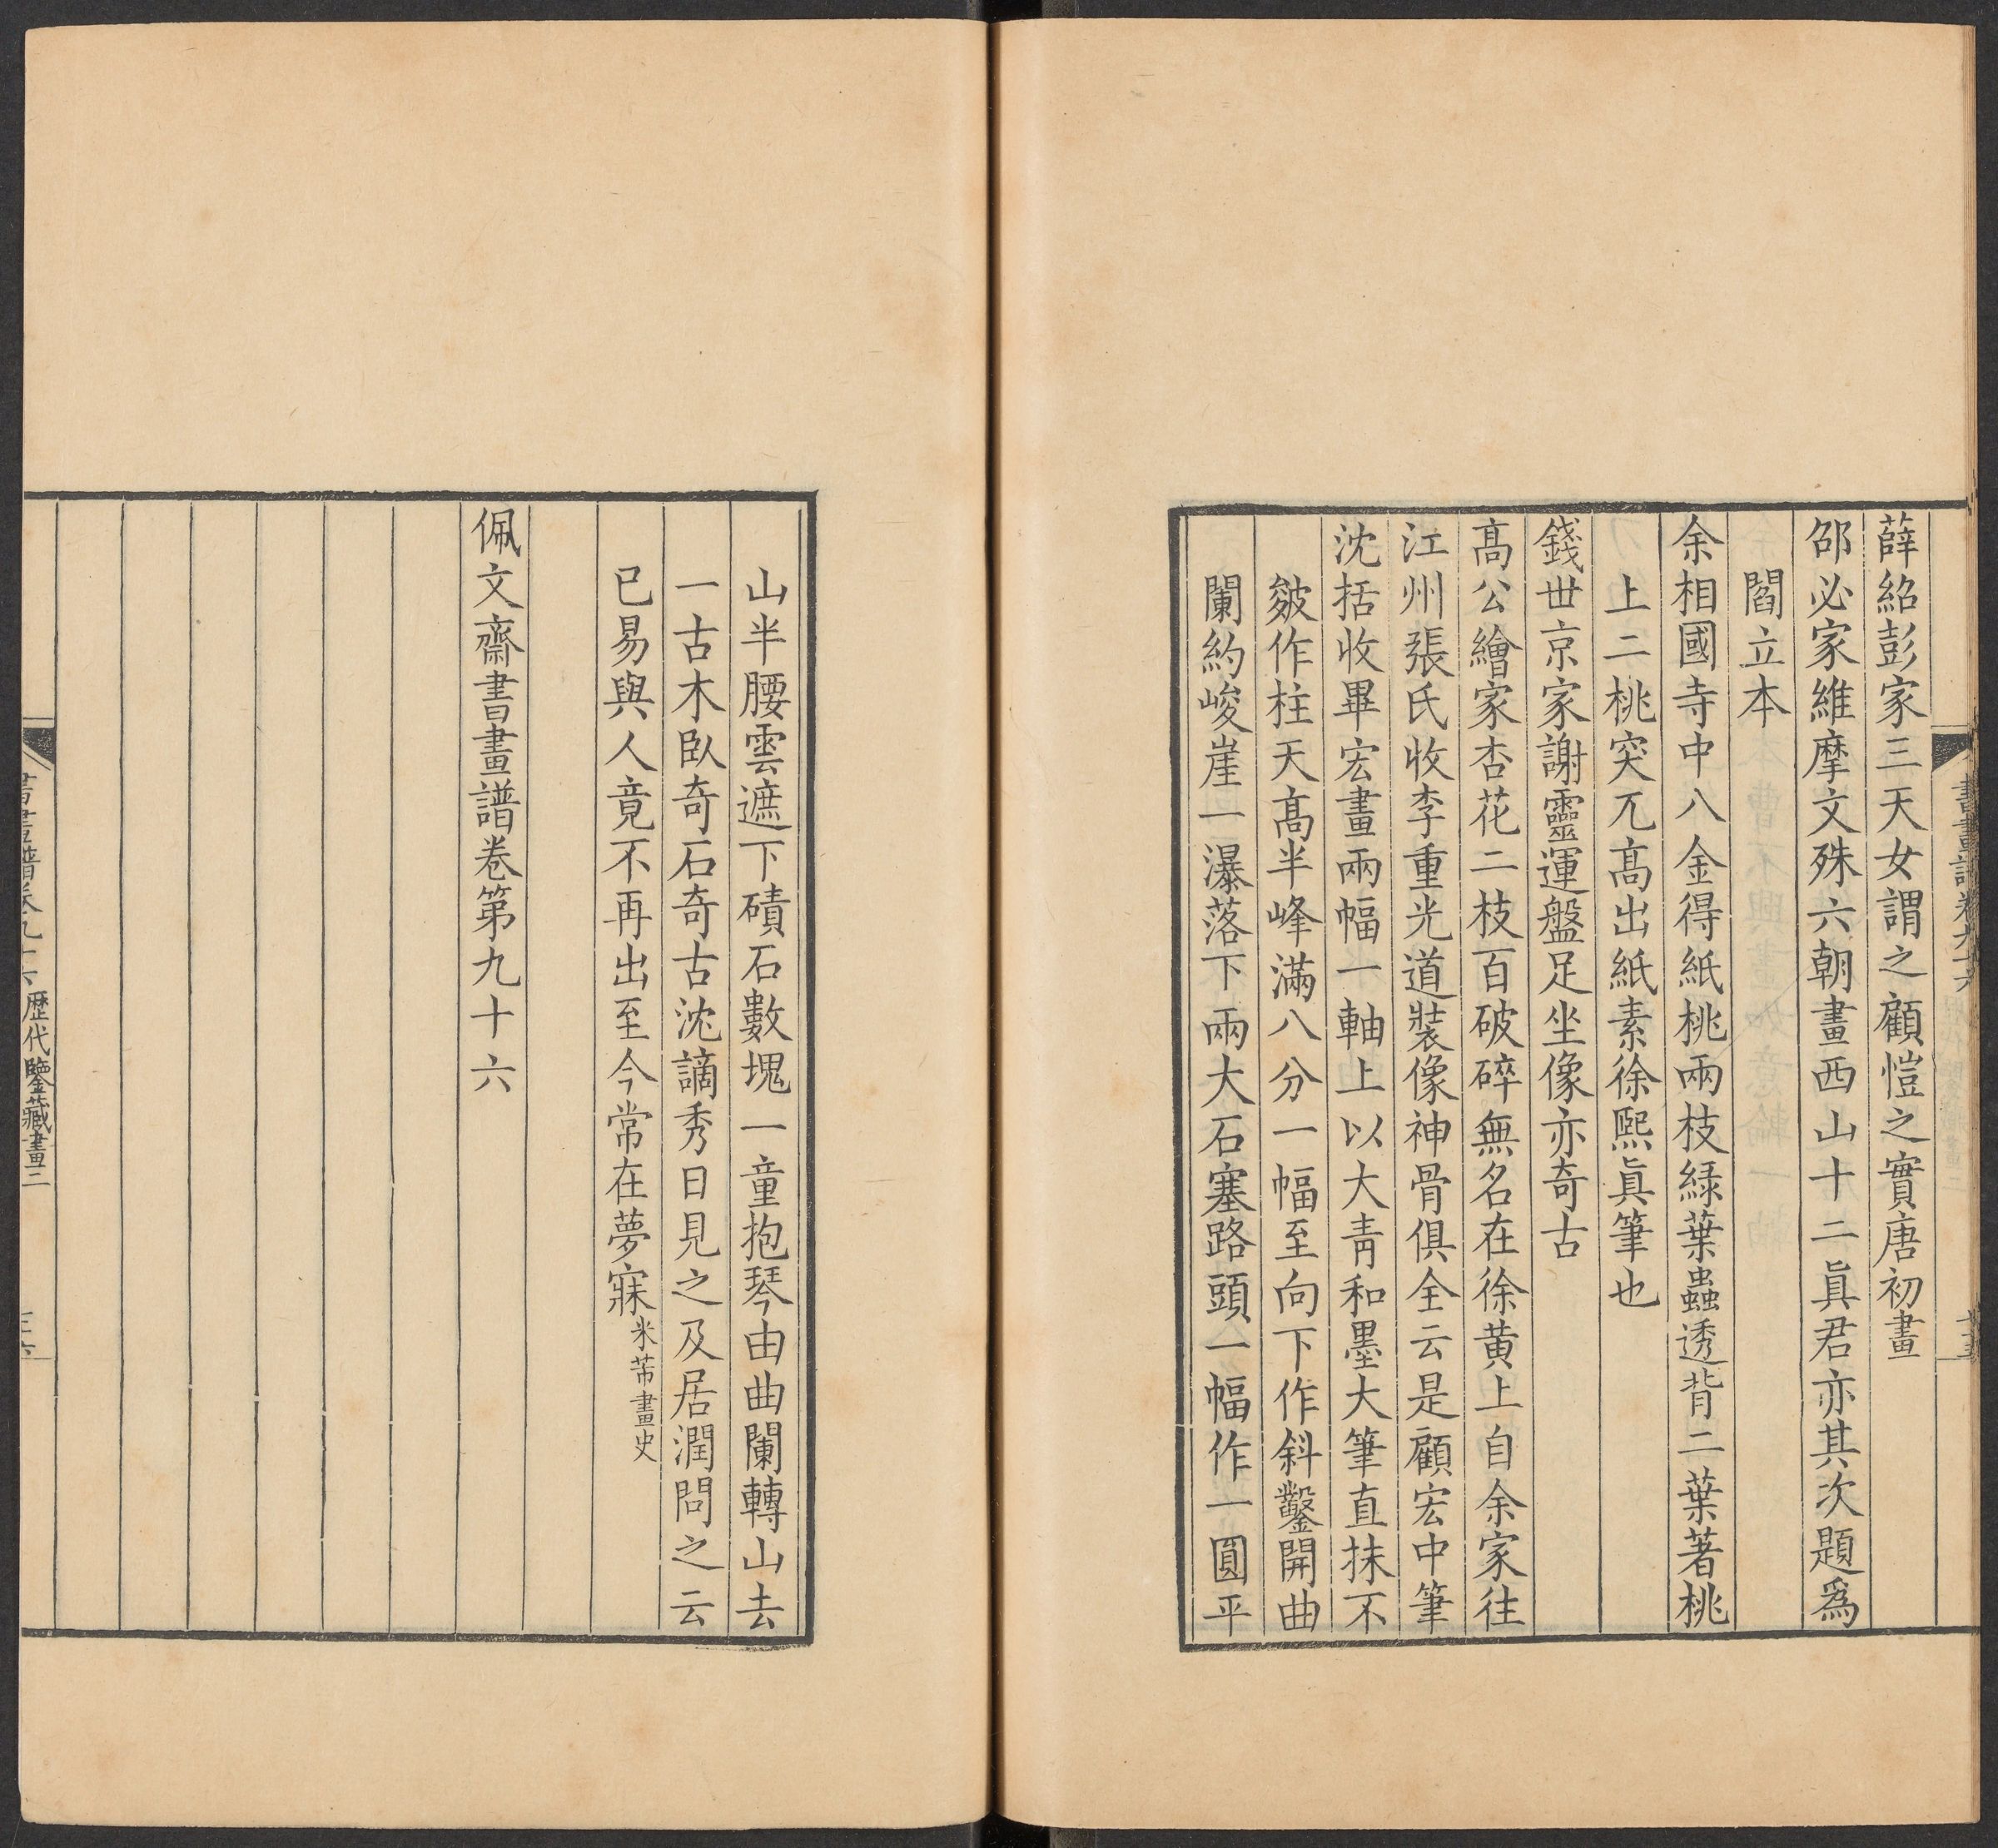 薛紹彭家三天女謂之顧愷之實唐初畫
邵必家維摩文殊六朝畫西山十二眞君亦其次題爲
閻立本
余相國寺中八金得紙桃兩枝綠葉蟲透背二葉著桃
上二桃突兀高出紙素徐熙眞筆也
錢世京家謝靈運盤足坐像亦奇古
高公繪家杏花二枝百破碎無名在徐黃上自余家往
江州張氏收李重光道裝像神骨俱全云是顧宏中筆
沈括收畢宏畫兩幅一軸上以大青和墨大筆直抹不
皴作柱天高半峰滿八分一幅至向下作斜鑿開曲
闌約峻崖一瀑落下兩大石塞路頭一幅作一圓平
山半腰雲遮下磧石數塊一童抱琴由曲闌轉山去
一古木臥奇石奇古沈謫秀日見之及居潤問之云
已易與人竟不再出至今常在夢寐米芾畫史
佩文齋書畫譜卷第九十六
書畫譜卷九十六 歷代鑒藏畫二